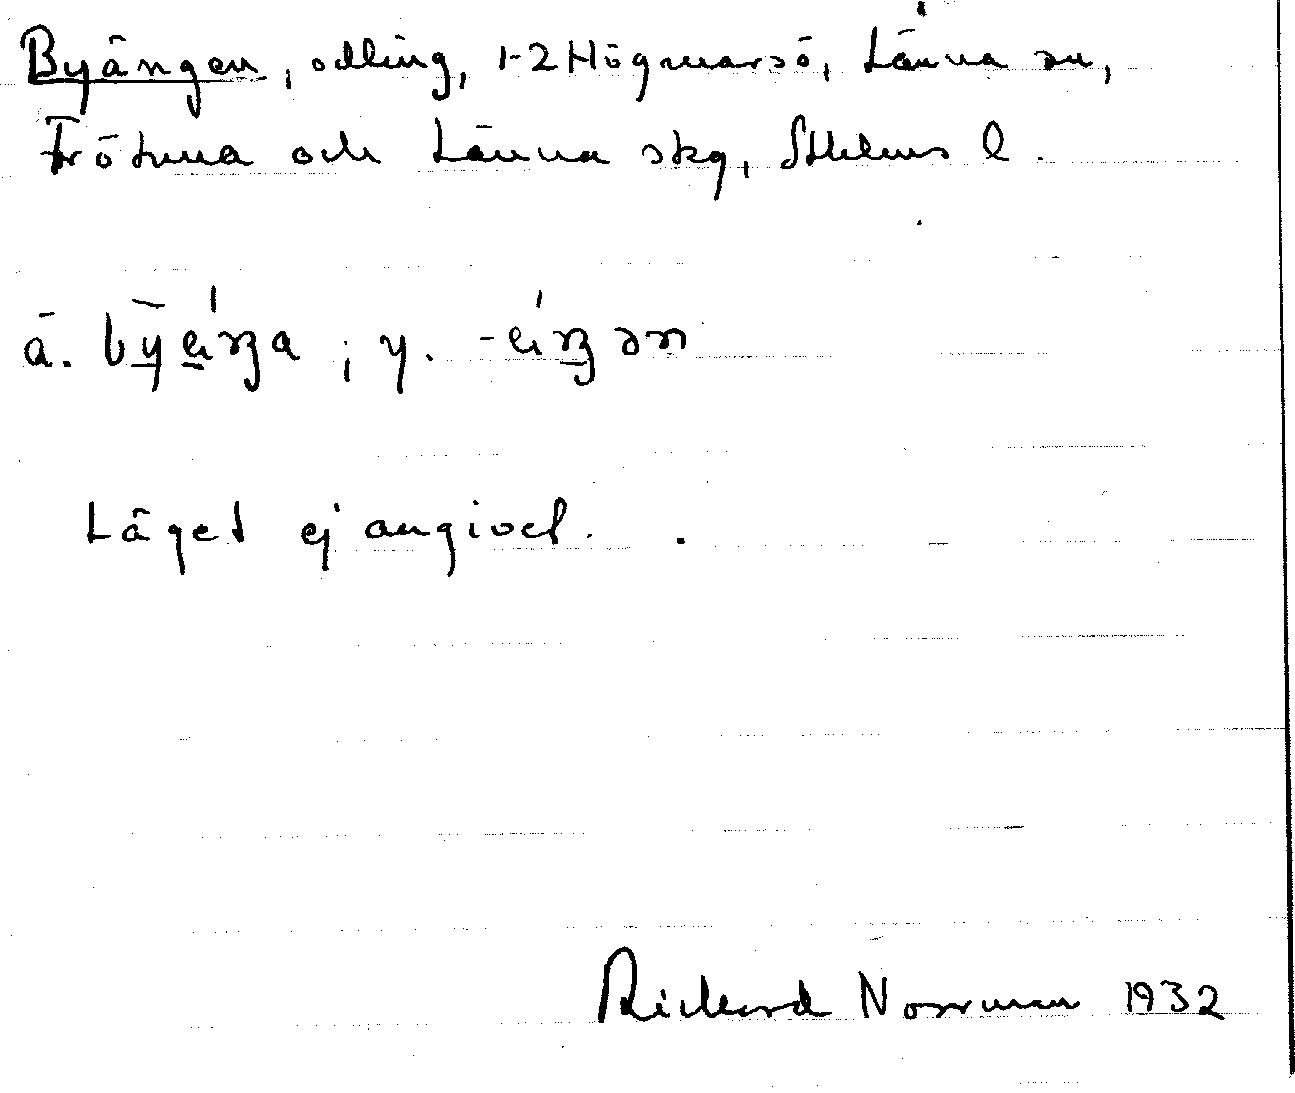 Byängen, odling, 1-2 Högmarsö, Länna sn,
Frötuna och Länna skg, Sthlms l.
ä. bȳäŋa ; y. -äŋən
Läget ej angivet.
Rickard Norrman 1932